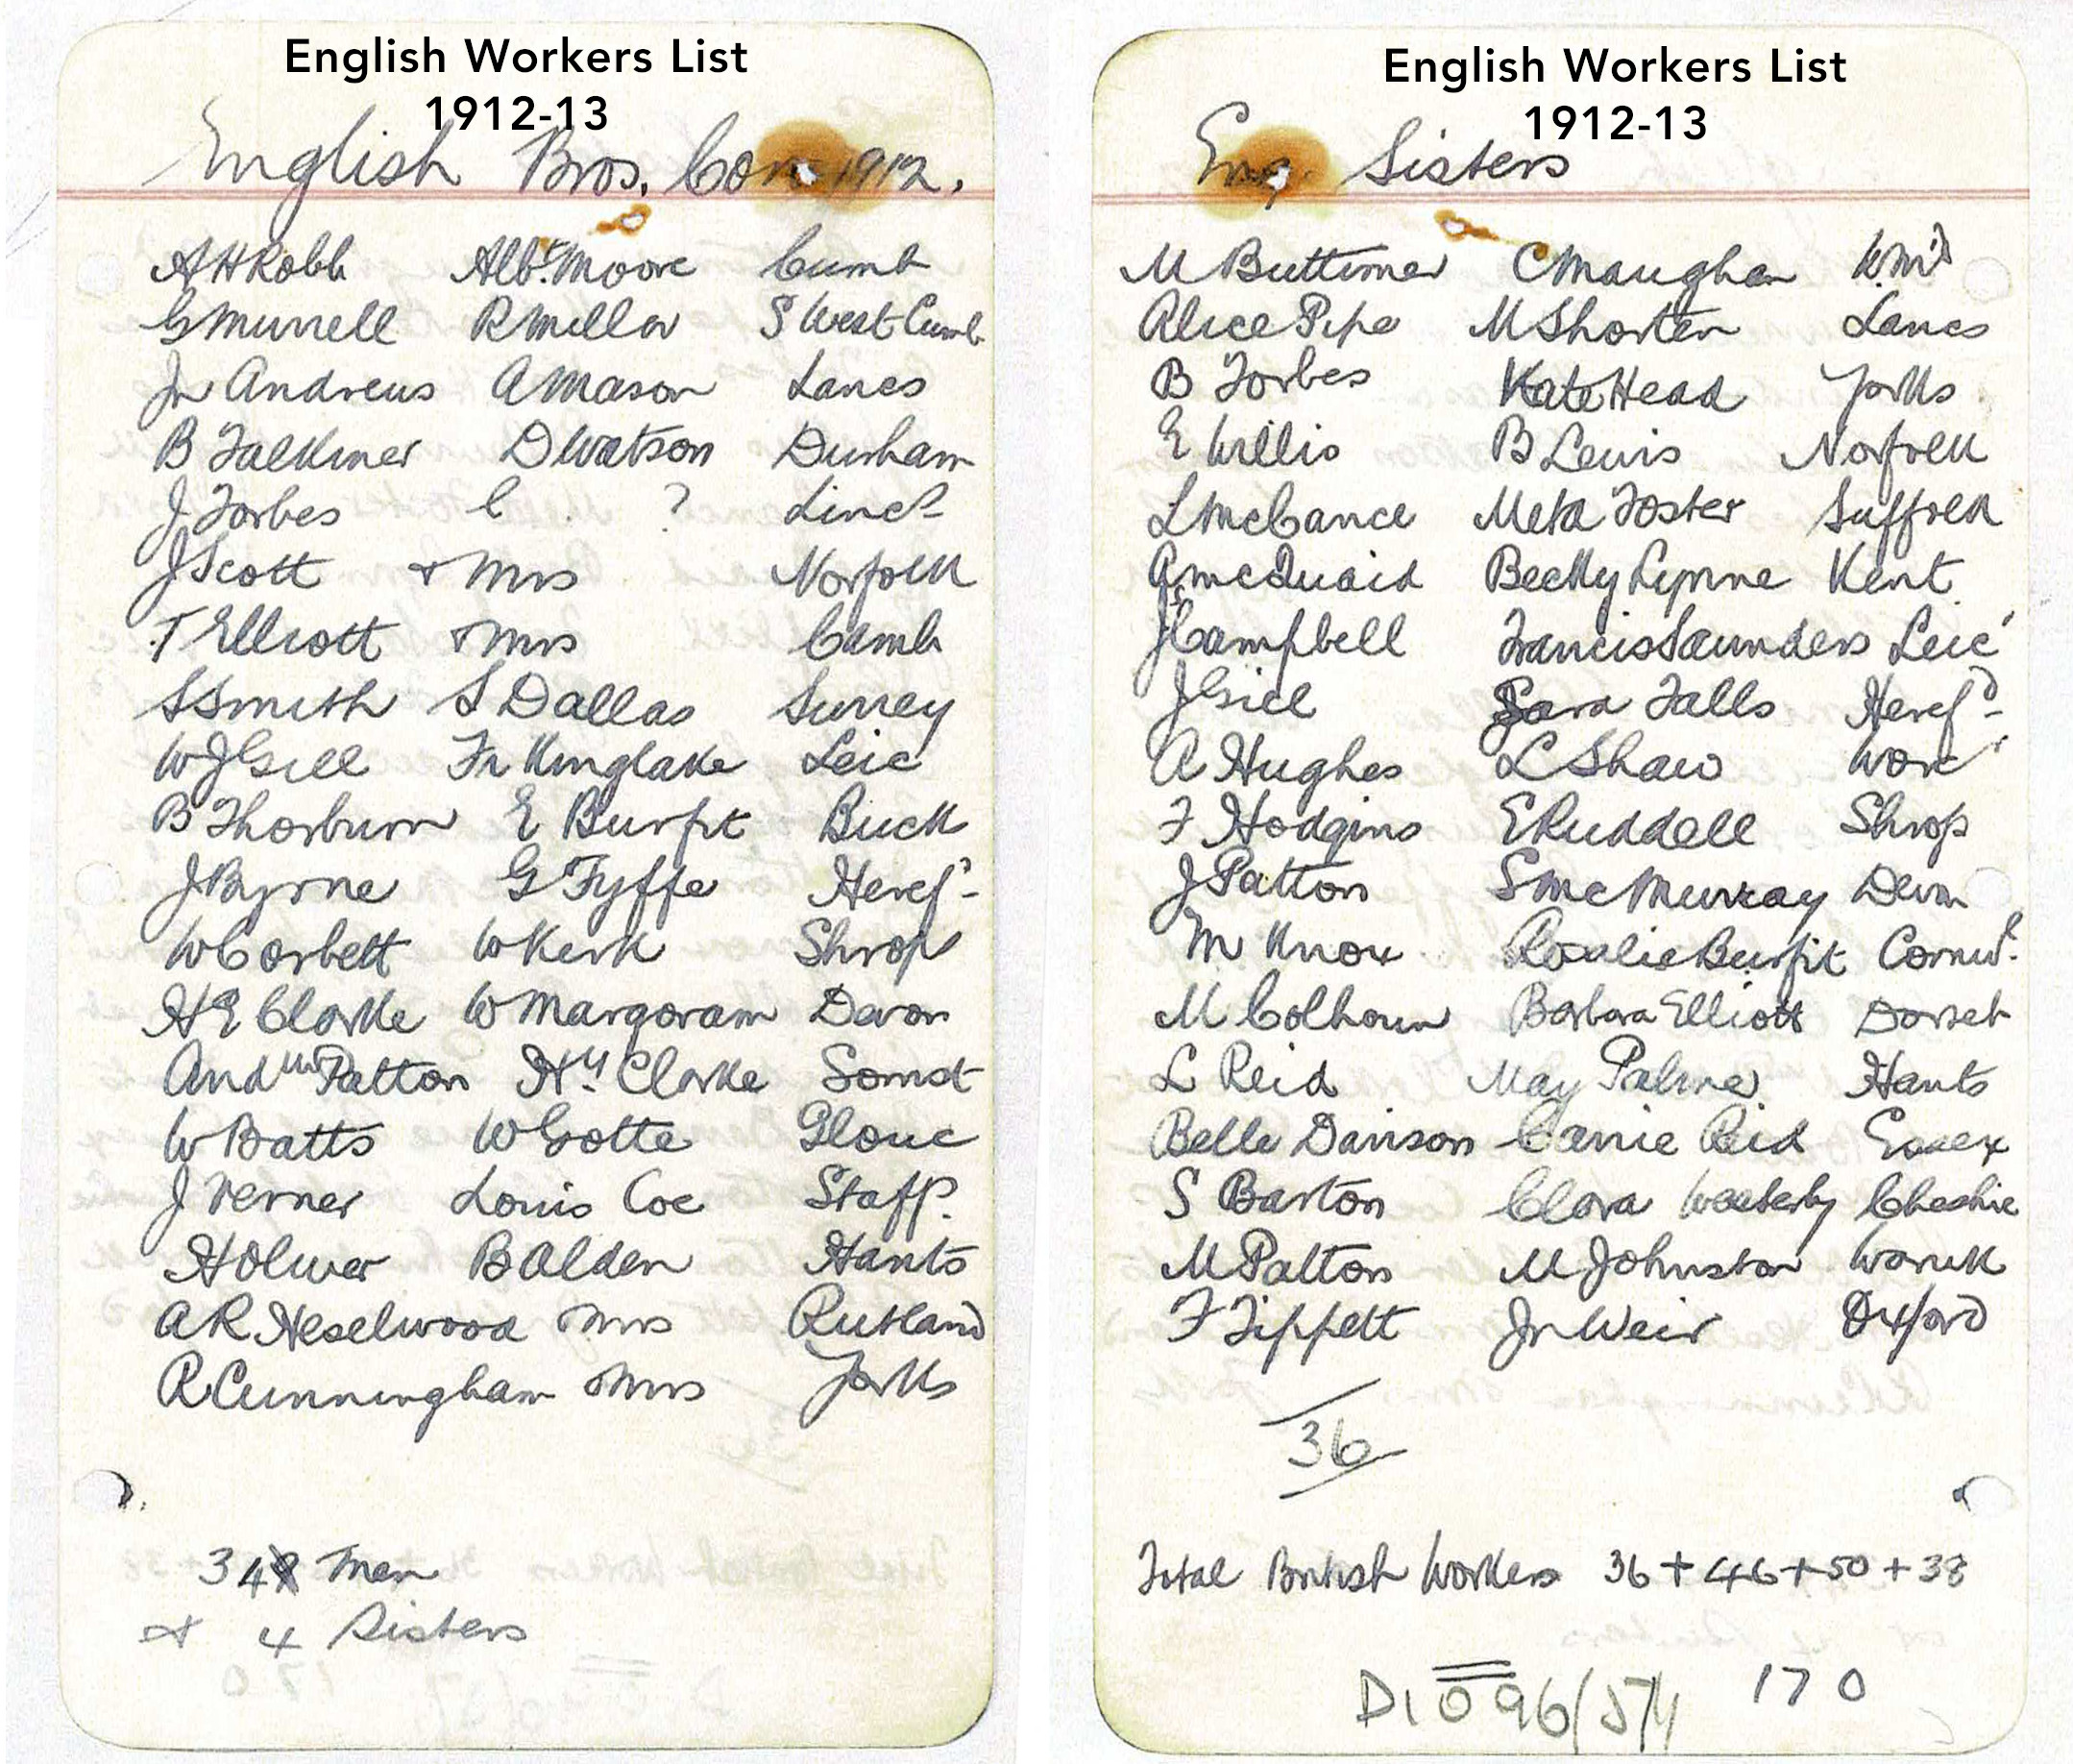 English Workers List
1912-13
English Bros. Con 1912.
A H Robb Albt. Moore Cumb
G Murrell R Miller S West Cumb
Jn Andrews A Mason Lancs
B Falkiner D Watson Durham
J Forbes C . ? Lincs
J Scott & Mrs Norfolk
T Elliott & Mrs Camb
S Smith S Dallas Surrey
W J Gill Fr Kinglake Leic
B Thorburn E Burfit Buck
J Byrne G Fyffe Heref
W Corbett W Kerk Shrop
H E Clarke W Margoram Devon
Andw Patton Hy Clarke Somst
W Batts W Grotte Glouc
J Verner Louis Coe Staff.
H Oliver B Alden Hants
A R Heselwood Mrs Rutland
R Cunningham Mrs Yorks
34 Men
& 4 Sisters
English Workers List
1912-13
Eng. Sisters
M Buttimer C Maughan W.m'd
Alice Pipe M Shorten Lancs
B Forbes Kate Head Yorks
E Willis B Lewis Norfolk
L McCance Meta Foster Suffolk
A McQuaid Becky Lynne Kent
J Campbell Francis Saunders Leic'
J Gill Sara Falls Heref'd
A Hughes L Shaw Worc'
F Hodgins E Ruddell Shrop
J Patton S McMurray Devn
M Knox Rosalie Burfit Cornwl.
M Colhoun Barbara Elliott Dorset
L Reid May Palmer Hants
Belle Davison Carrie Reid Essex
S Barton Clara Weaterby Cheshire
M Patton M Johnston Warwk
F Tippett Jn Weir Oxford
36
Total British Workers 36+46+50+38
170